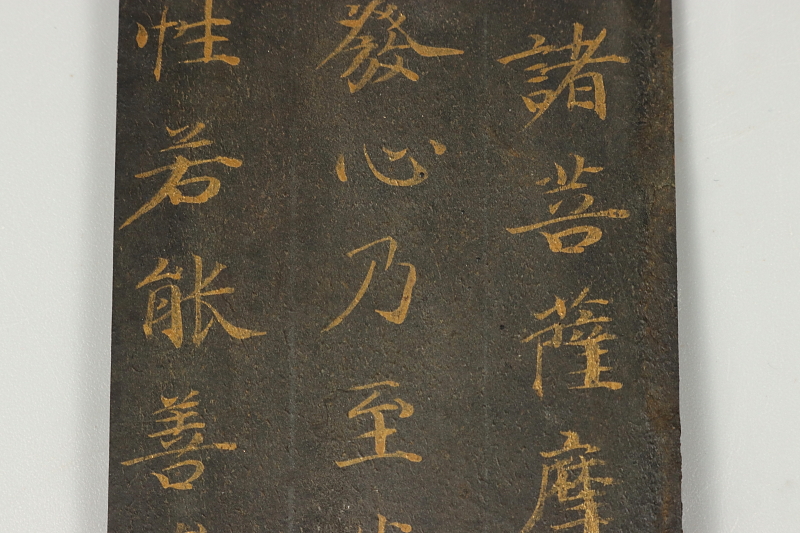 諸菩薩摩
發心乃至
性若能善